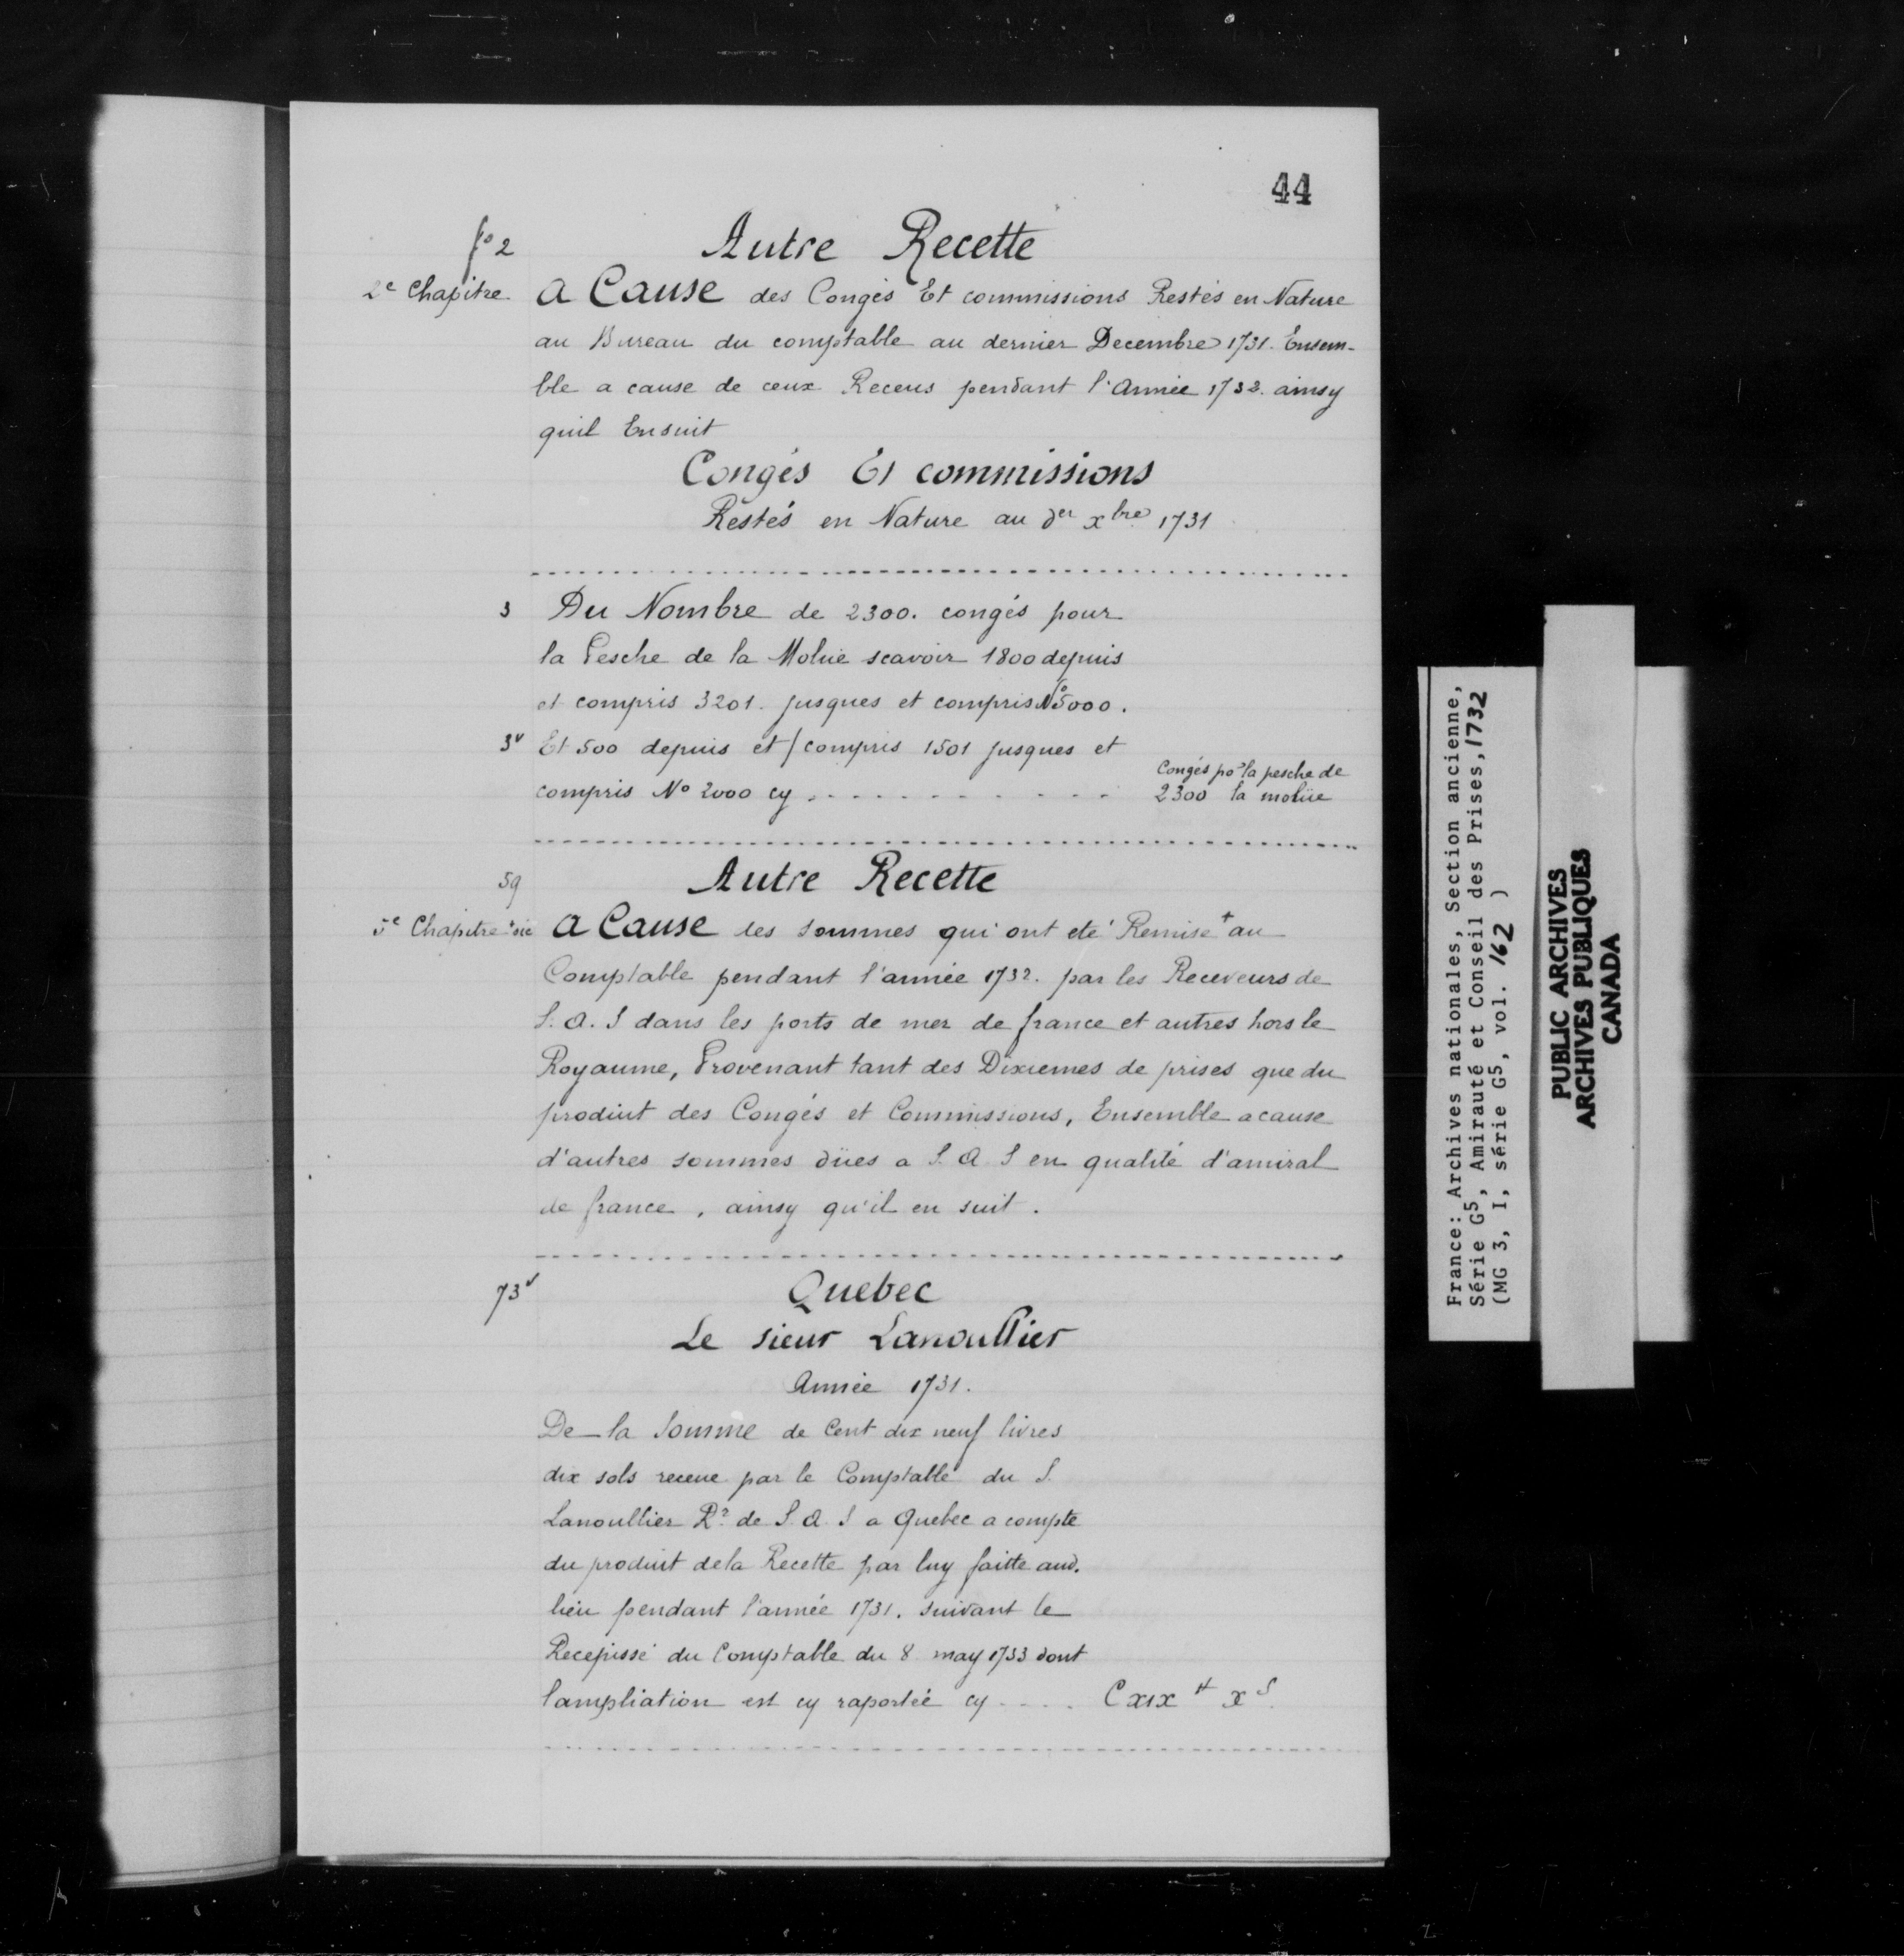 44
fo 2
Autre Recette
2e Chapitre
A Cause des Congés Et commissions Restés en Nature
au Bureau du comptable au dernier Decembre 1731. Ensem-
ble a cause de ceux Receus pendant l'Année 1732. ainsy
quil Ensuit
Congés Et commissions
Restés en Nature au der xbre 1731
3 Du Nombre de 2300. congés pour
la Pesche de la Moluë scavoir 1800 depuis
et compris 3201. jusques et compris No 5000.
3v Et 500 depuis et / compris 1501 jusques et
compris No 2000 cy . . . . . . . . . . .
Congés por la pesche de
2300 la molüe
59
Autre Recette
5e Chapitre sic
A Cause des sommes qui ont eté Remise + au
Comptable pendant l'année 1732. par les Receveurs de
S. A. S dans les ports de mer de france et autres hors le
Royaume, Provenant tant des Dixiemes de prises que du
produit des Congés et Commissions, Ensemble a cause
d'autres sommes dües a S. A. S en qualité d'amiral
de france, ainsy qu'il en suit.
73v
Quebec
Le sieur Lanoullier
Année 1731.
De la Somme de Cent dix neuf livres
dix sols receue par le Comptable du S.
Lanoullier Rr de S. A. S a Quebec a compte
du produit dela Recette par luy faitte aud.
lieu pendant l'année 1731. suivant le
Recepissé du Comptable du 8 may 1733 dont
l'ampliation est cy raportée cy . . . . C xix # x s
France: Archives nationales, Section ancienne,
Série G5, Amirauté et Conseil des Prises, 1732
(MG 3, I, série G5, vol. 162 )
PUBLIC ARCHIVES
ARCHIVES PUBLIQUES
CANADA